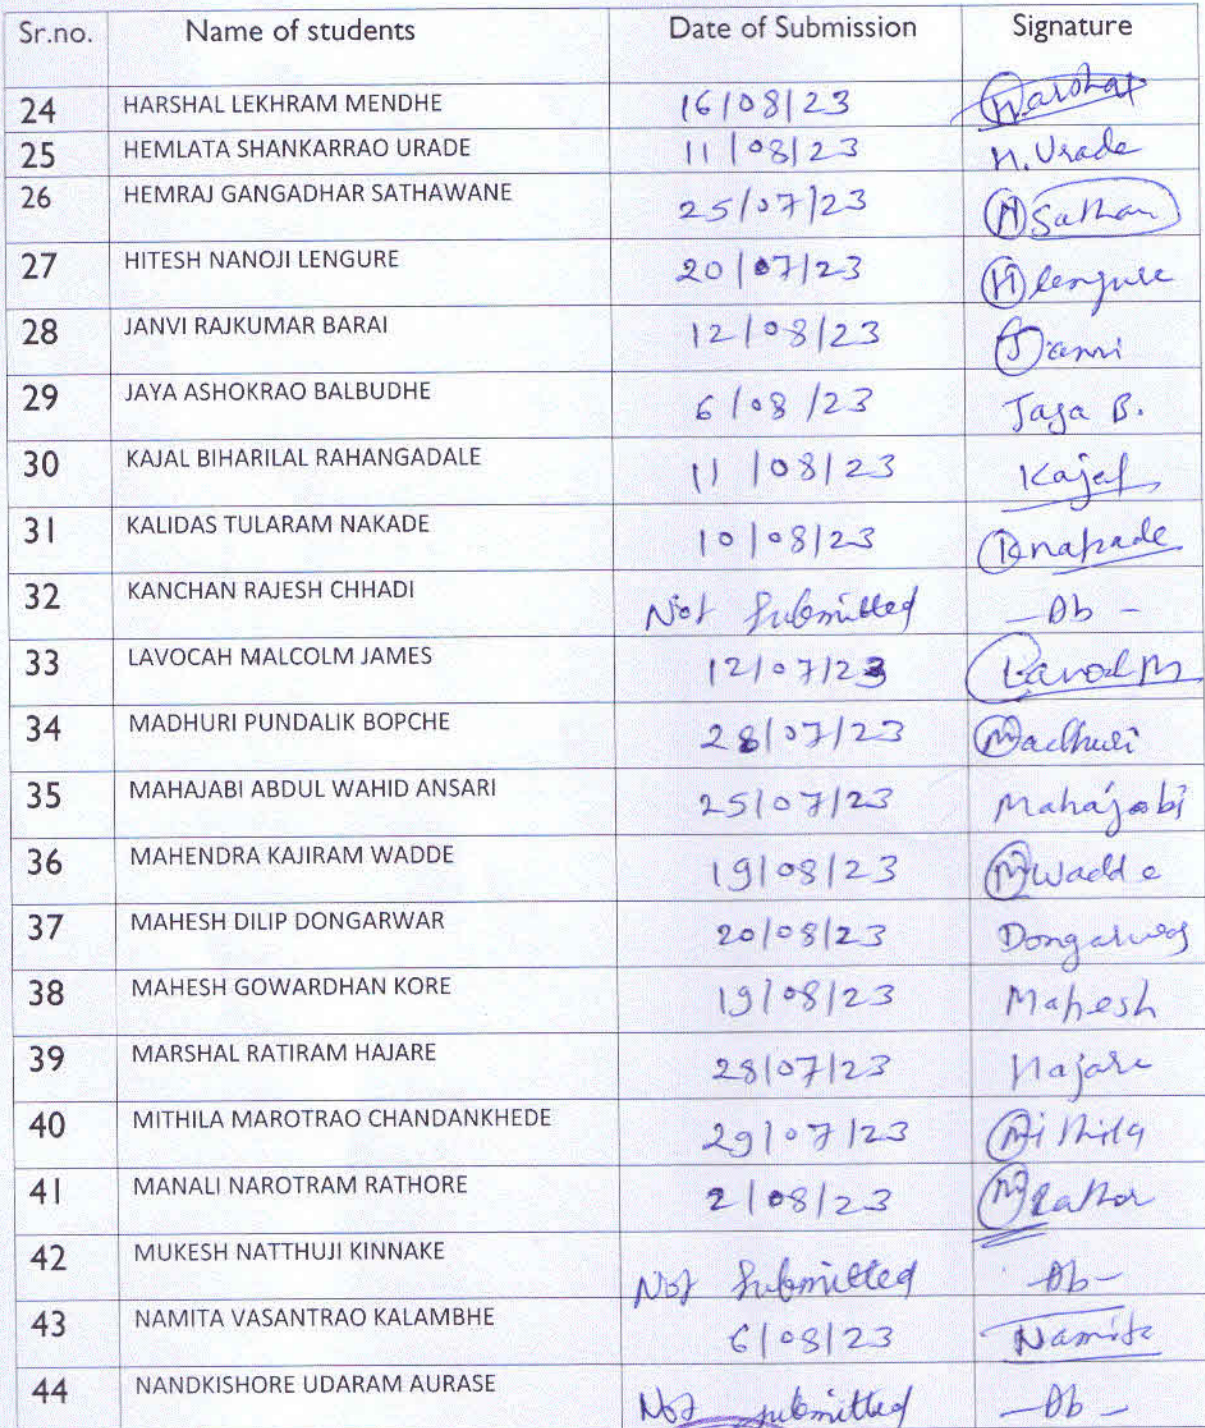 Sr.no. Name of students Date of Submission Signature
24 HARSHAL LEKHRAM MENDHE 16/08/23 Harshal
25 HEMLATA SHANKARRAO URADE 11/08/23 H. Urade
26 HEMRAJ GANGADHAR SATHAWANE 25/07/23 H Sathan
27 HITESH NANOJI LENGURE 20/07/23 H lengure
28 JANVI RAJKUMAR BARAI 12/08/23 Janvi
29 JAYA ASHOKRAO BALBUDHE 6/08/23 Jaya B.
30 KAJAL BIHARILAL RAHANGADALE 11/08/23 Kajal
31 KALIDAS TULARAM NAKADE 10/08/23 Knakade
32 KANCHAN RAJESH CHHADI Not Submitted -Ab-
33 LAVOCAH MALCOLM JAMES 12/07/23
34 MADHURI PUNDALIK BOPCHE 28/07/23 Madhuri
35 MAHAJABI ABDUL WAHID ANSARI 25/07/23 Mahajabi
36 MAHENDRA KAJIRAM WADDE 19/08/23 M Wadde
37 MAHESH DILIP DONGARWAR 20/08/23 Dongarwar
38 MAHESH GOWARDHAN KORE 19/08/23 Mahesh
39 MARSHAL RATIRAM HAJARE 28/07/23 Hajare
40 MITHILA MAROTRAO CHANDANKHEDE 29/07/23 Mithila
41 MANALI NAROTRAM RATHORE 2/08/23 M Rathor
42 MUKESH NATTHUJI KINNAKE Not Submitted -Ab-
43 NAMITA VASANTRAO KALAMBHE 6/08/23 Namita
44 NANDKISHORE UDARAM AURASE Not submitted -Ab-